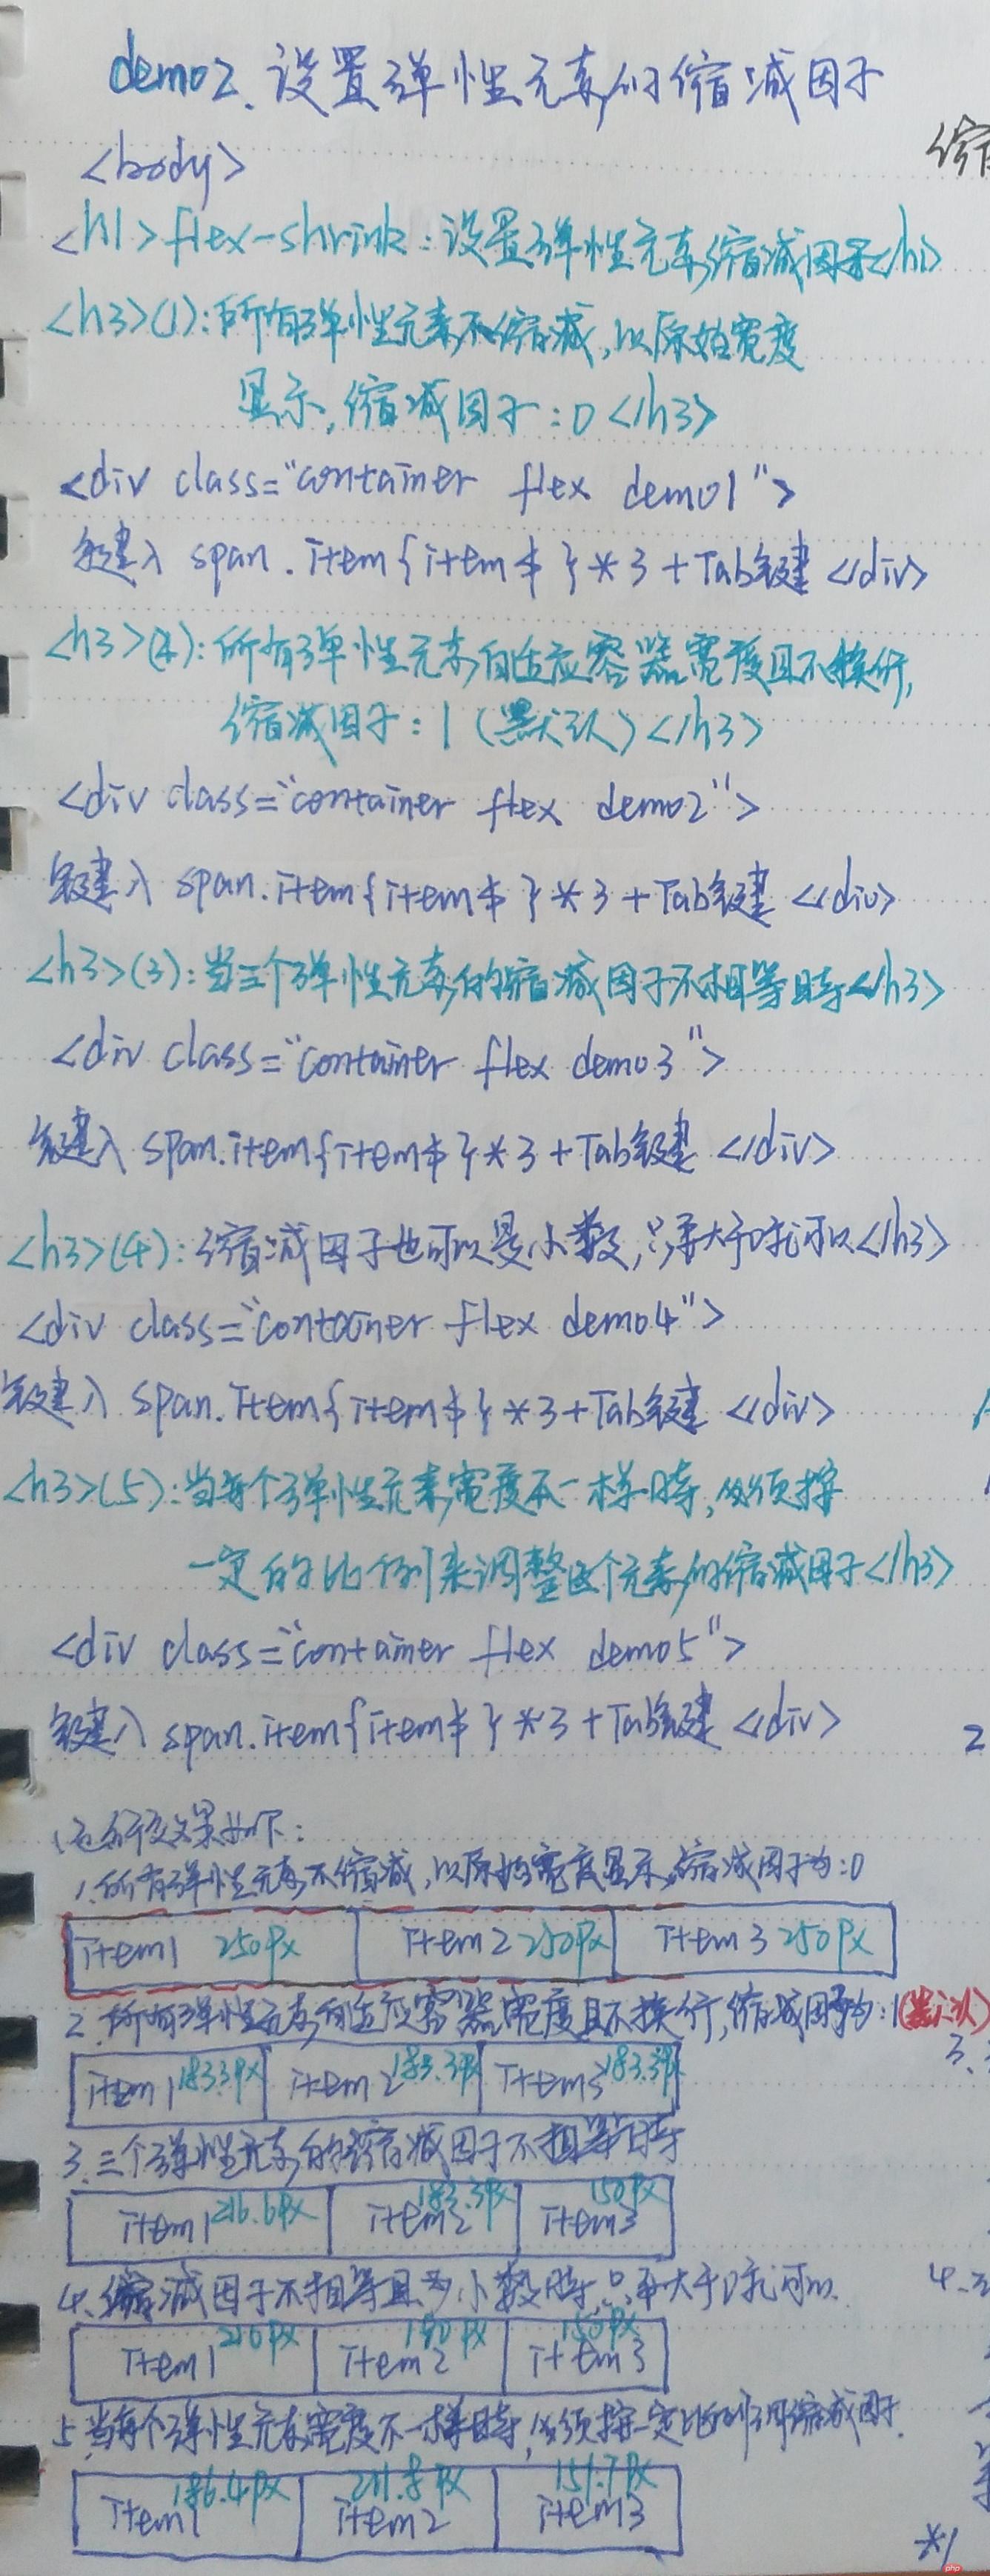 demo2、设置弹性元素的缩减因子
缩
<body>
<h1>flex-shrink:设置弹性元素缩减因子</h1>
<h3>(1):所有弹性元素不缩减,以原始宽度
显示,缩减因子:0</h3>
<div class="container flex demo1">
键入 span.item{item$}*3+Tab键 </div>
<h3>(2):所有弹性元素自适应容器宽度且不换行,
缩减因子:1(默认)</h3>
<div class="container flex demo2">
键入 span.item{item$}*3+Tab键 </div>
<h3>(3):当三个弹性元素的缩减因子不相等时</h3>
<div class="container flex demo3">
键入 span.item{item$}*3+Tab键 </div>
<h3>(4):缩减因子也可以是小数,只要大于0就可以</h3>
<div class="container flex demo4">
键入 span.item{item$}*3+Tab键 </div>
<h3>(5):当每个弹性元素宽度不一样时,必须按
一定的比例来调整这个元素的缩减因子</h3>
<div class="container flex demo5">
键入 span.item{item$}*3+Tab键 </div>
2
运行效果如下:
1.所有弹性元素不缩减,以原始宽度显示,缩减因子为:0
item1 250px item2 250px item3 250px
2.所有弹性元素自适应容器宽度且不换行,缩减因子为:1(默认)
3.
item1 183.3px item2 183.3px item3 183.3px
3.三个弹性元素的缩减因子不相等时
item1 216.6px item2 183.3px item3 150px
4.缩减因子不相等且为小数时,只要大于0就可以.
4.
item1 210px item2 190px item3 150px
5.当每个弹性元素宽度不一样时,必须按一定比例调缩减因子.
item1 186.4px item2 211.8px item3 151.7px
*/
php